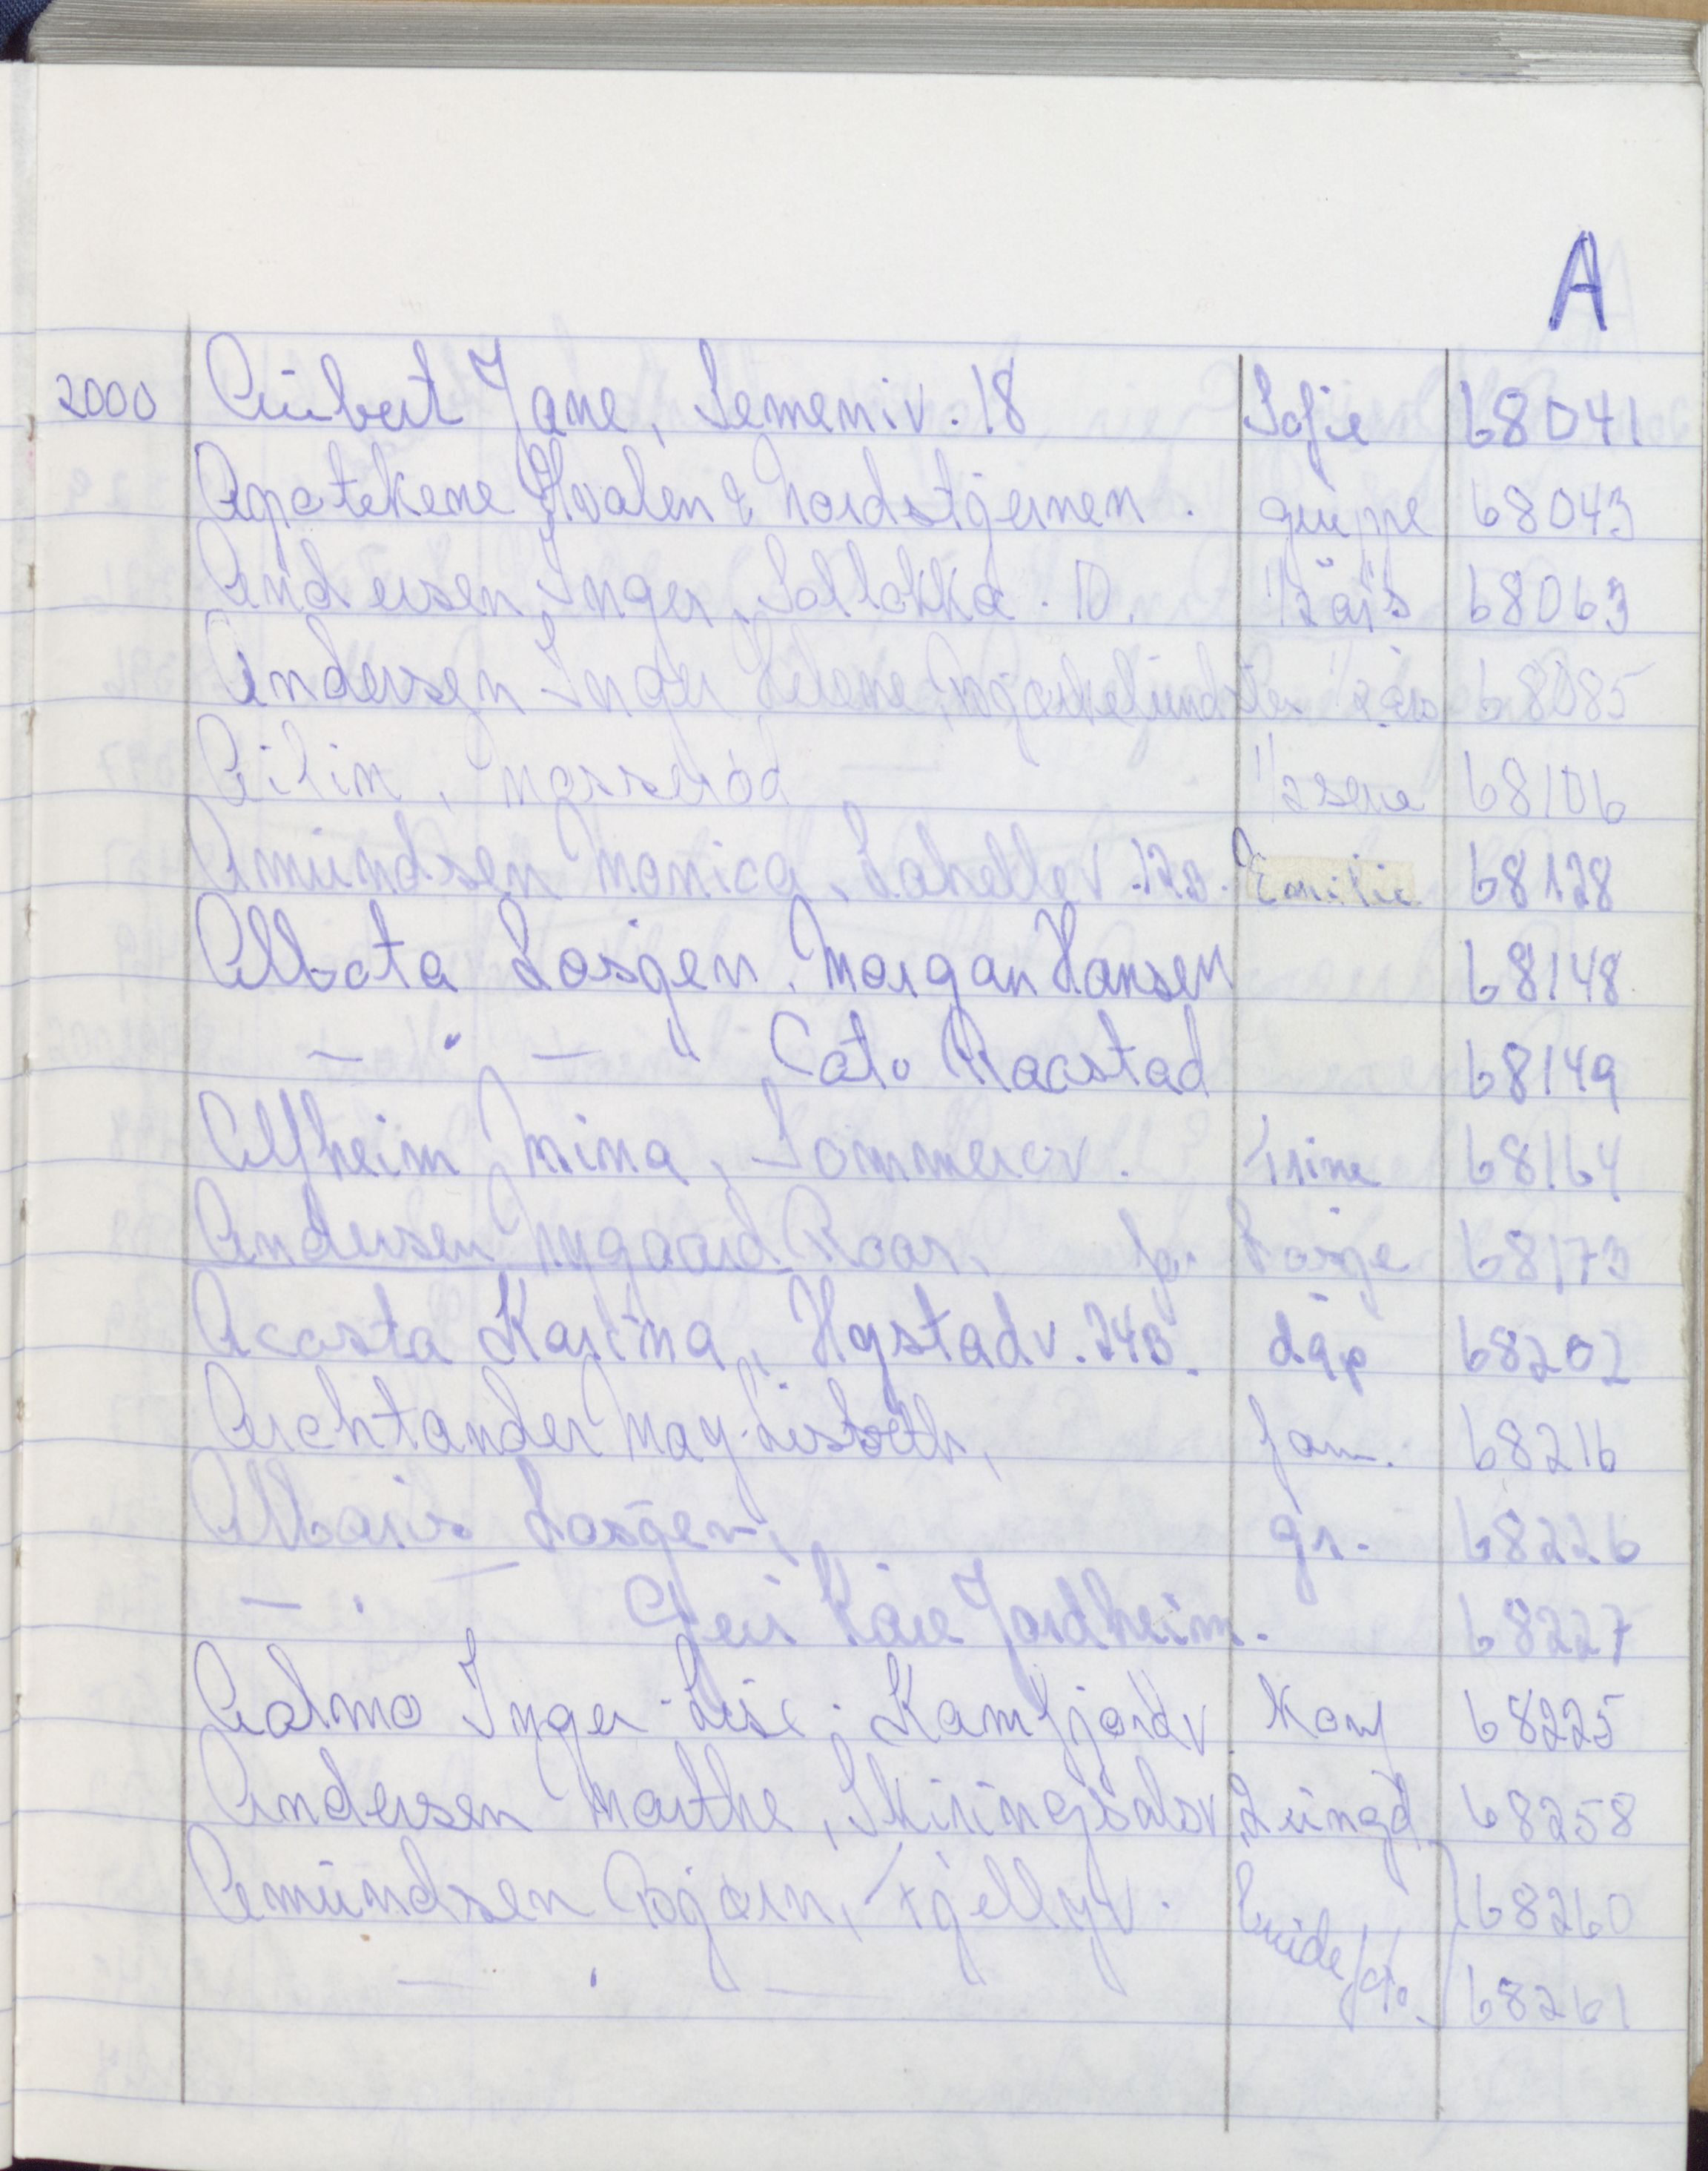 A
2000 Aubert Jane, Semeniv. 18 Sofie 68041
Apotekene Hvalen & Nordstjernen. gruppe 68043
Andersen Inger, Solløkka. 10. 1/2 års 68063
Andersen Inger Helene, Bjerkelundstien 1/2 års 68085
Ailin, Mosserød 1/2 serie 68106
Amundsen Monica, Lahellev. 17B. Emilie 68128
Albata Losjen. Morgan Hansen 68148
— " — " Cato Raastad 68149
Alfheim Nina, Sommerov. Trine 68164
Andersen Nygaard Roar, Børge 68173
Acosta Karina, Hystadv. 24B. dåp 68202
Archtander May-Lisbeth, fam. 68216
Albaris Losjen, gr. 68226
— " — Geir Kåre Jordheim. 68227
Aalmo Inger-Lise, Kamfjordv. Konf 68225
Andersen Marthe, Skiringsalsv. 2 ungd. 68258
Amundsen Bjørn, Fjellyv. brude/foto. 68260
— " — 68261